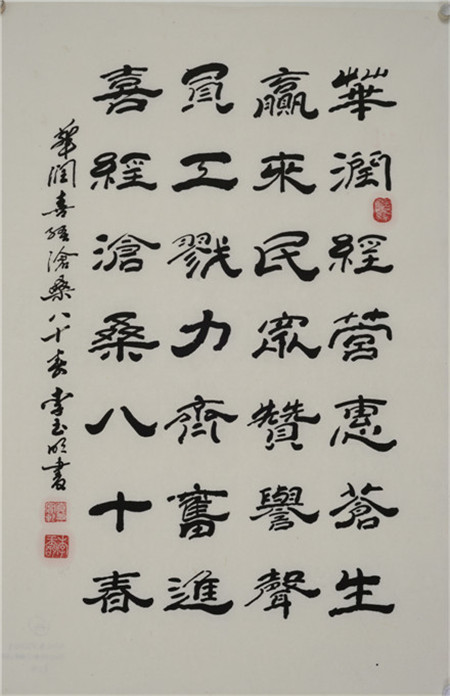 華潤經營惠蒼生
贏來民眾贊譽聲
員工戮力齊奮進
喜經滄桑八十春
華润喜經滄桑八十春 李玉明書